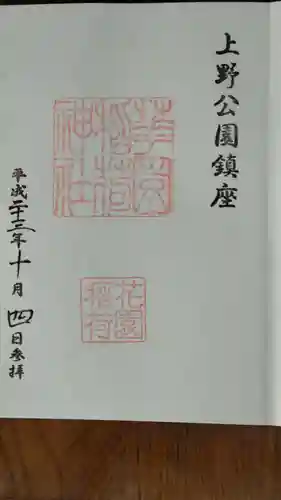 上野公園鎮座
花園稲荷神社
花園稲荷
平成二十三年十月四日参拝